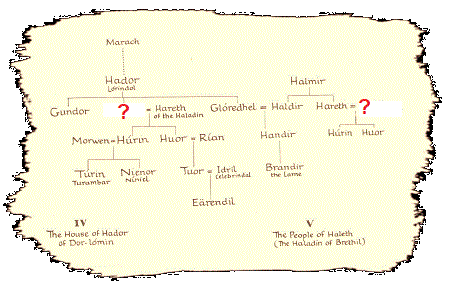 Marach
Hador
Lórindol
Halmir
Gundor ? = Hareth Glóredhel = Haldir Hareth = ?
of the Haladin
Morwen = Húrin Huor = Rían Handir Húrin Huor
Túrin Nienor Tuor = Idril Brandir
Turambar Níniel Celebrindal the Lame
Eärendil
IV V
The House of Hador The People of Haleth
of Dor-lómin (The Haladin of Brethil)